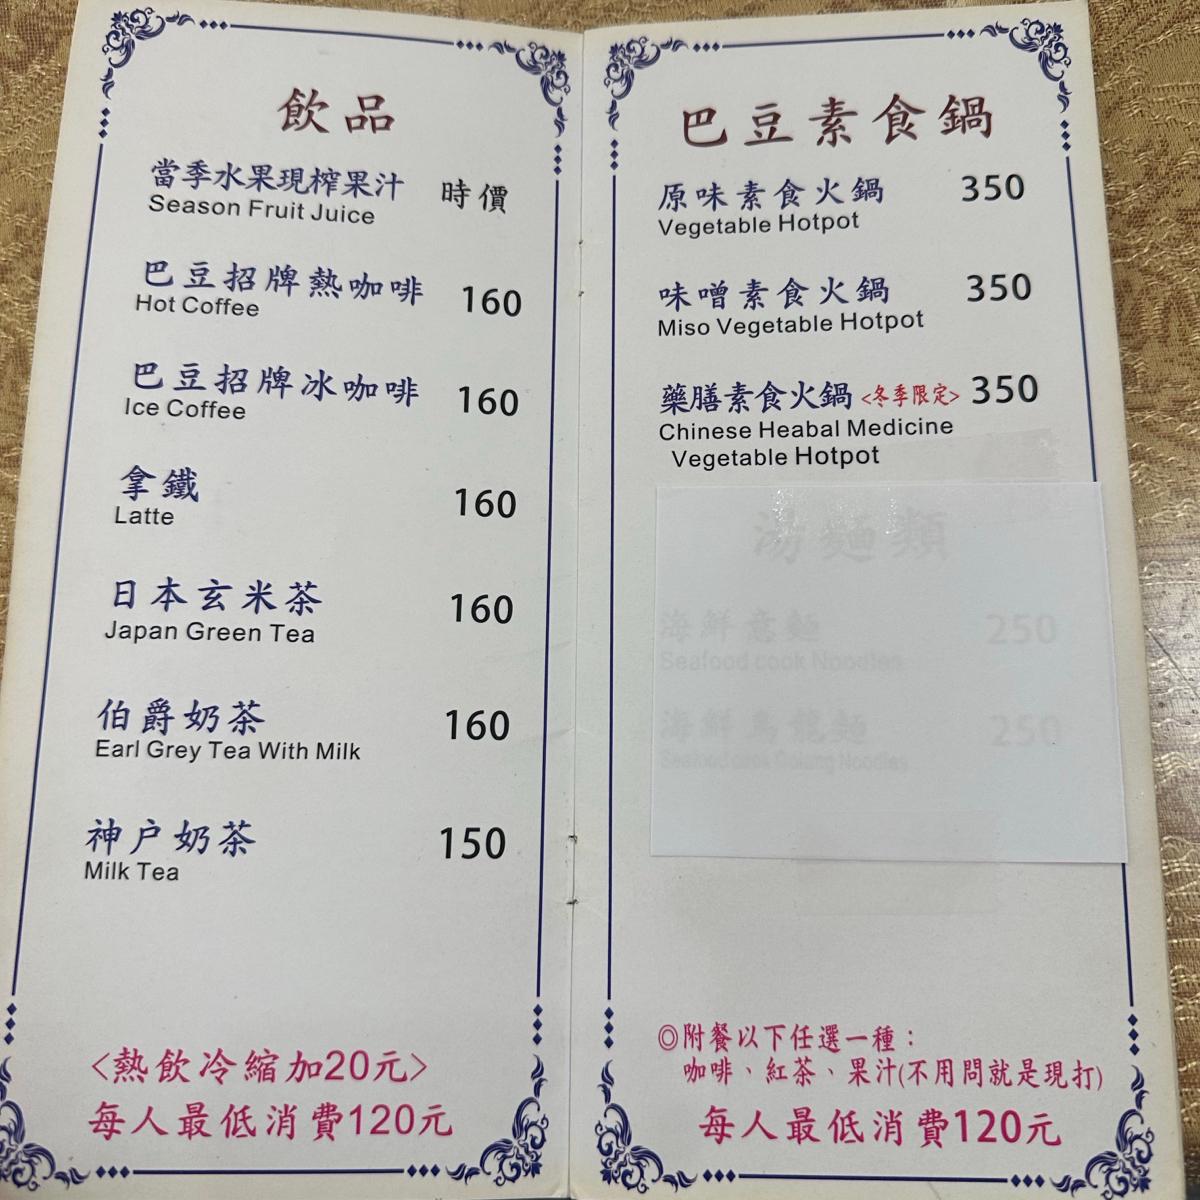 飲品
當季水果現榨果汁 時價
Season Fruit Juice
巴豆招牌熱咖啡 160
Hot Coffee
巴豆招牌冰咖啡 160
Ice Coffee
拿鐵 160
Latte
日本玄米茶 160
Japan Green Tea
伯爵奶茶 160
Earl Grey Tea With Milk
神户奶茶 150
Milk Tea
<熱飲冷縮加20元>
每人最低消費120元
巴豆素食鍋
原味素食火鍋 350
Vegetable Hotpot
味噌素食火鍋 350
Miso Vegetable Hotpot
藥膳素食火鍋<冬季限定> 350
Chinese Heabal Medicine
Vegetable Hotpot
湯麵類
海鮮意麵 250
Seafood cook Noodles
海鮮烏龍麵 250
Seafood cook Noodles
◎附餐以下任選一種：
咖啡、紅茶、果汁(不用問就是現打)
每人最低消費120元